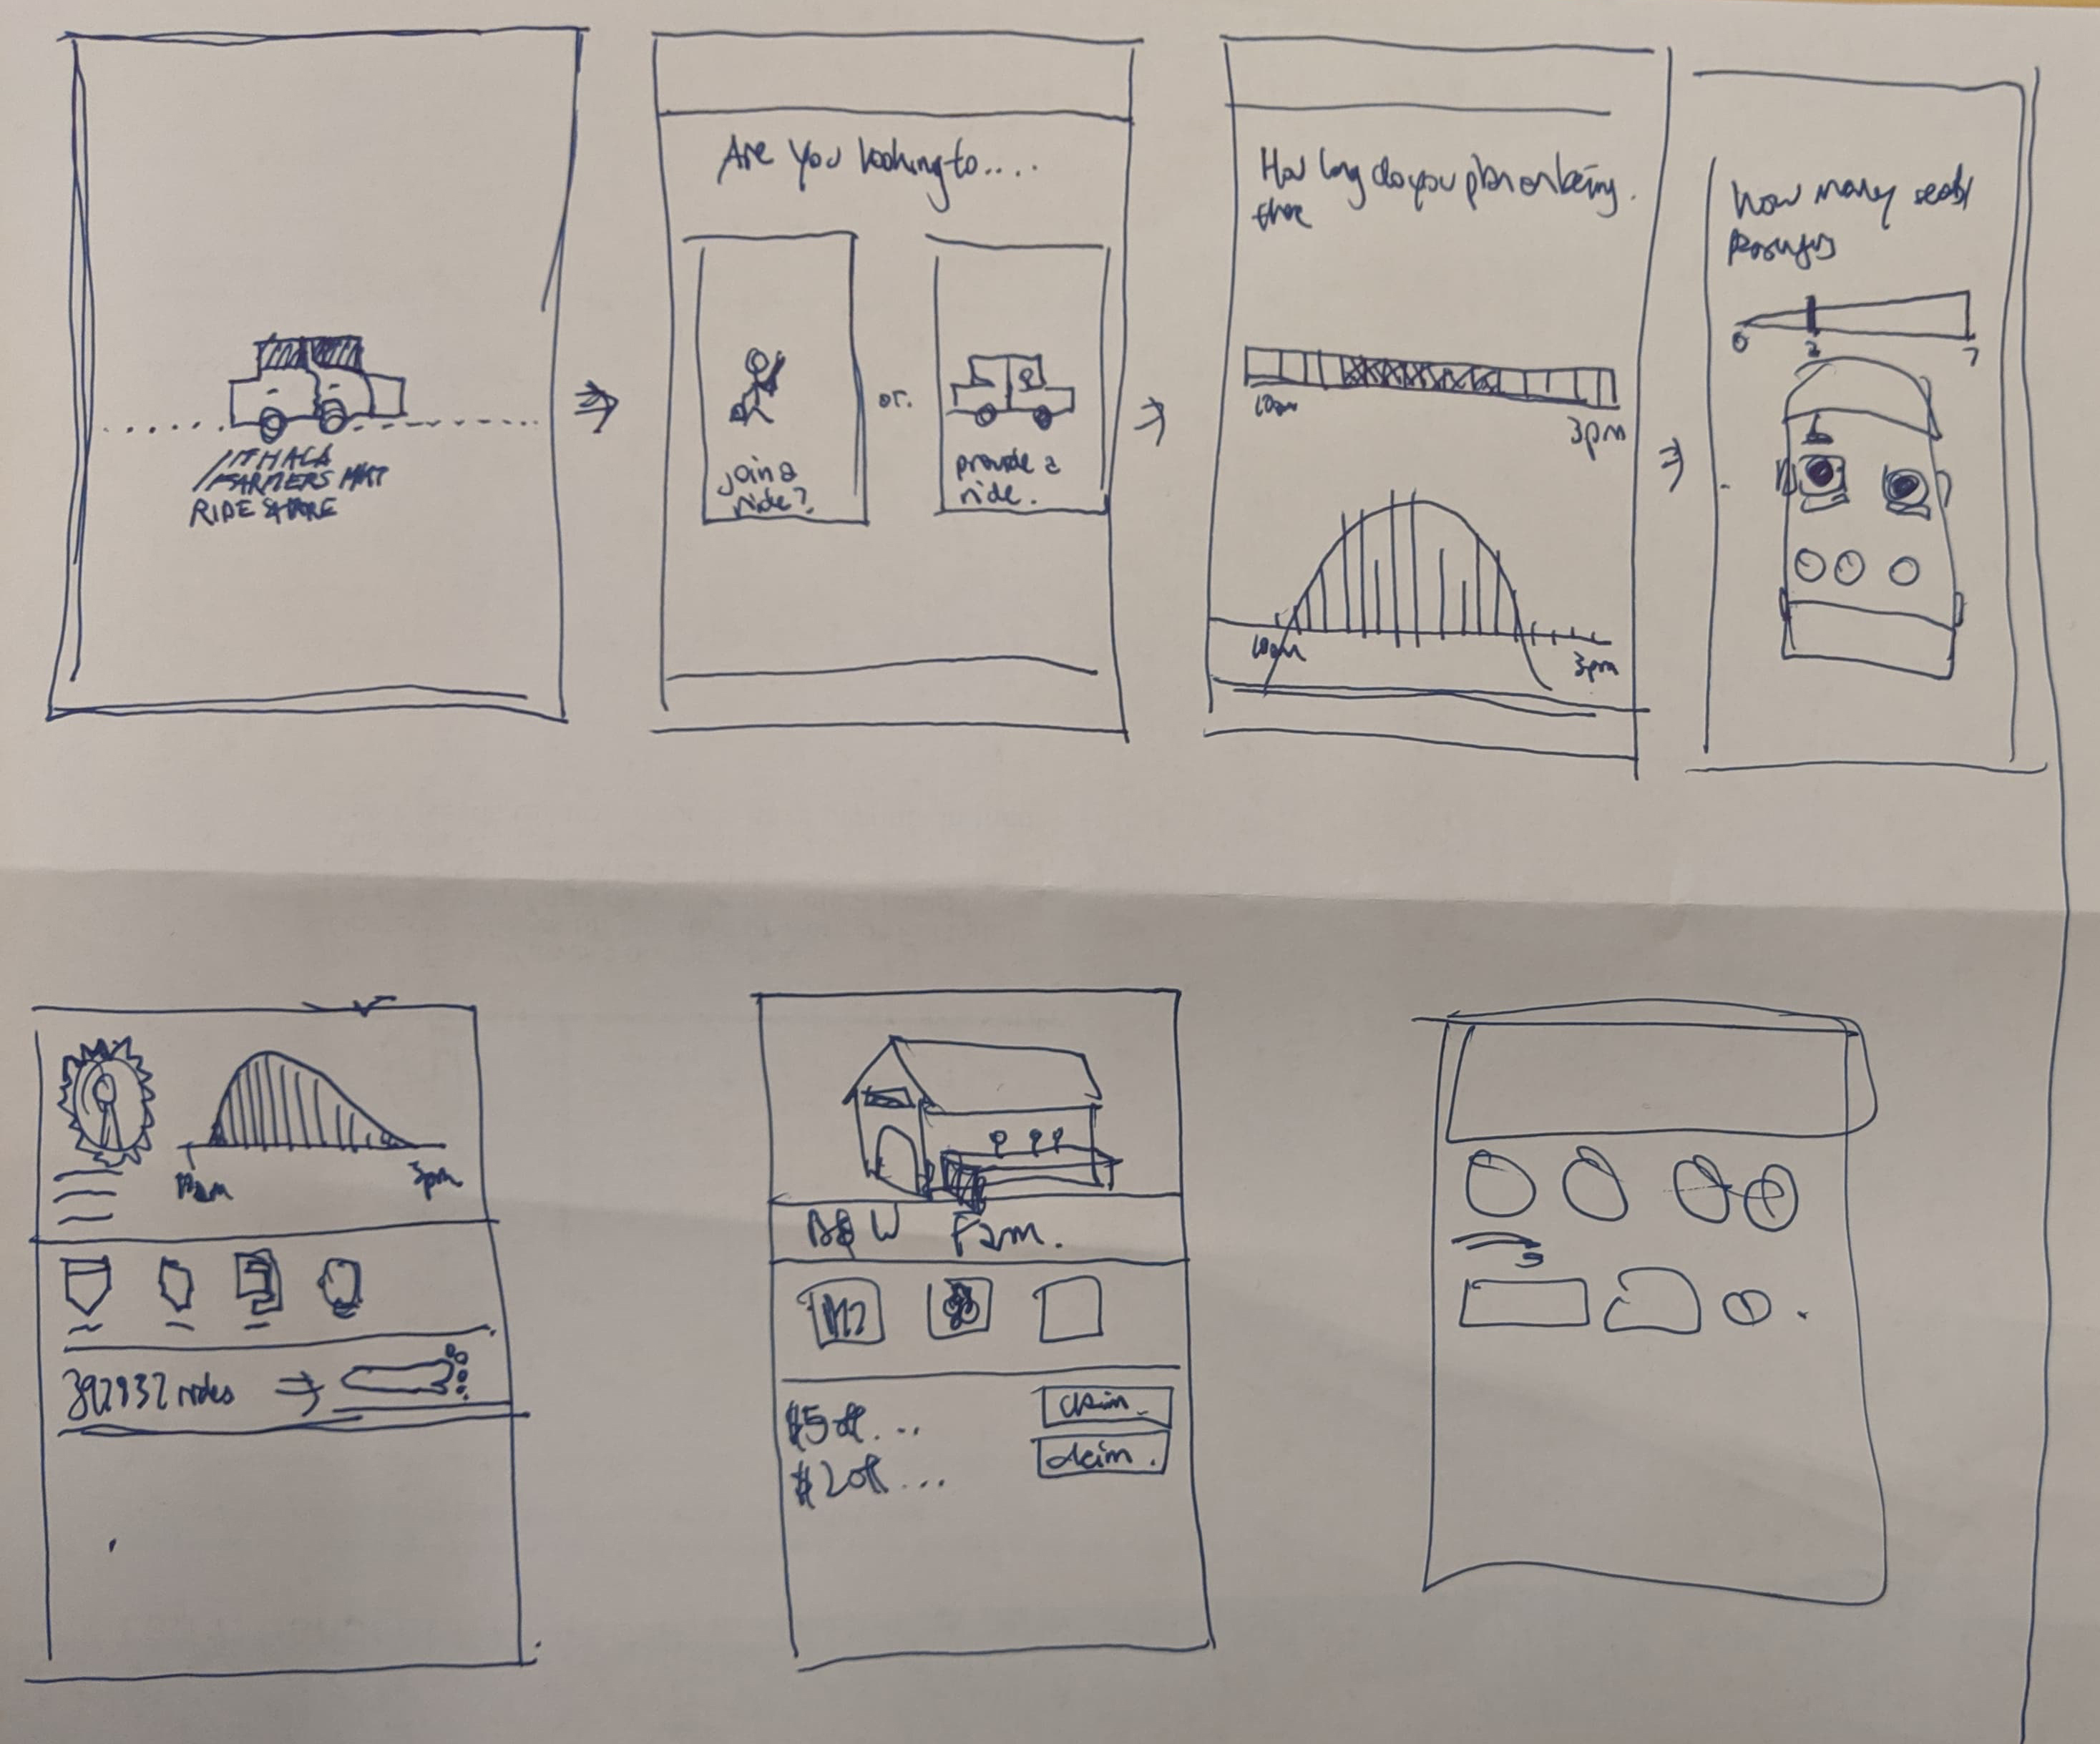 ITHACA
FARMERS MKT
RIDE SHARE
Are you looking to....
join a
ride?
or.
provide a
ride.
How long do you plan on being
there
10am
3pm
10am
3pm
How many seats
0
2
7
10am
3pm
392932 rides
B&W Farm.
$5 off...
claim.
$2 off...
claim.